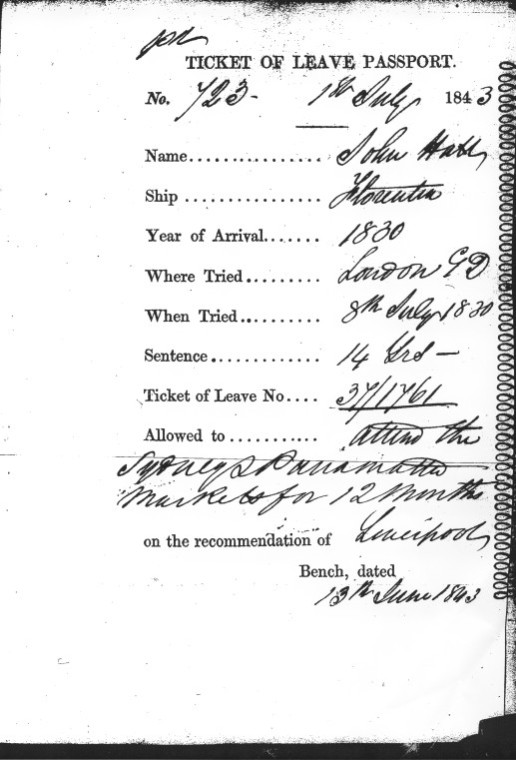 TICKET OF LEAVE PASSPORT.
No. 723- 1st July 1843
Name................ John
Ship ................. Florentia
Year of Arrival....... 1830
Where Tried......... London GD
When Tried.......... 8th July 1830
Sentence............. 14 Yrs —
Ticket of Leave No.... 37/1761
Allowed to ........... attend the
Sydney & Parramatta
Markets for 12 Months
on the recommendation of Liverpool
Bench, dated
13th June 1843